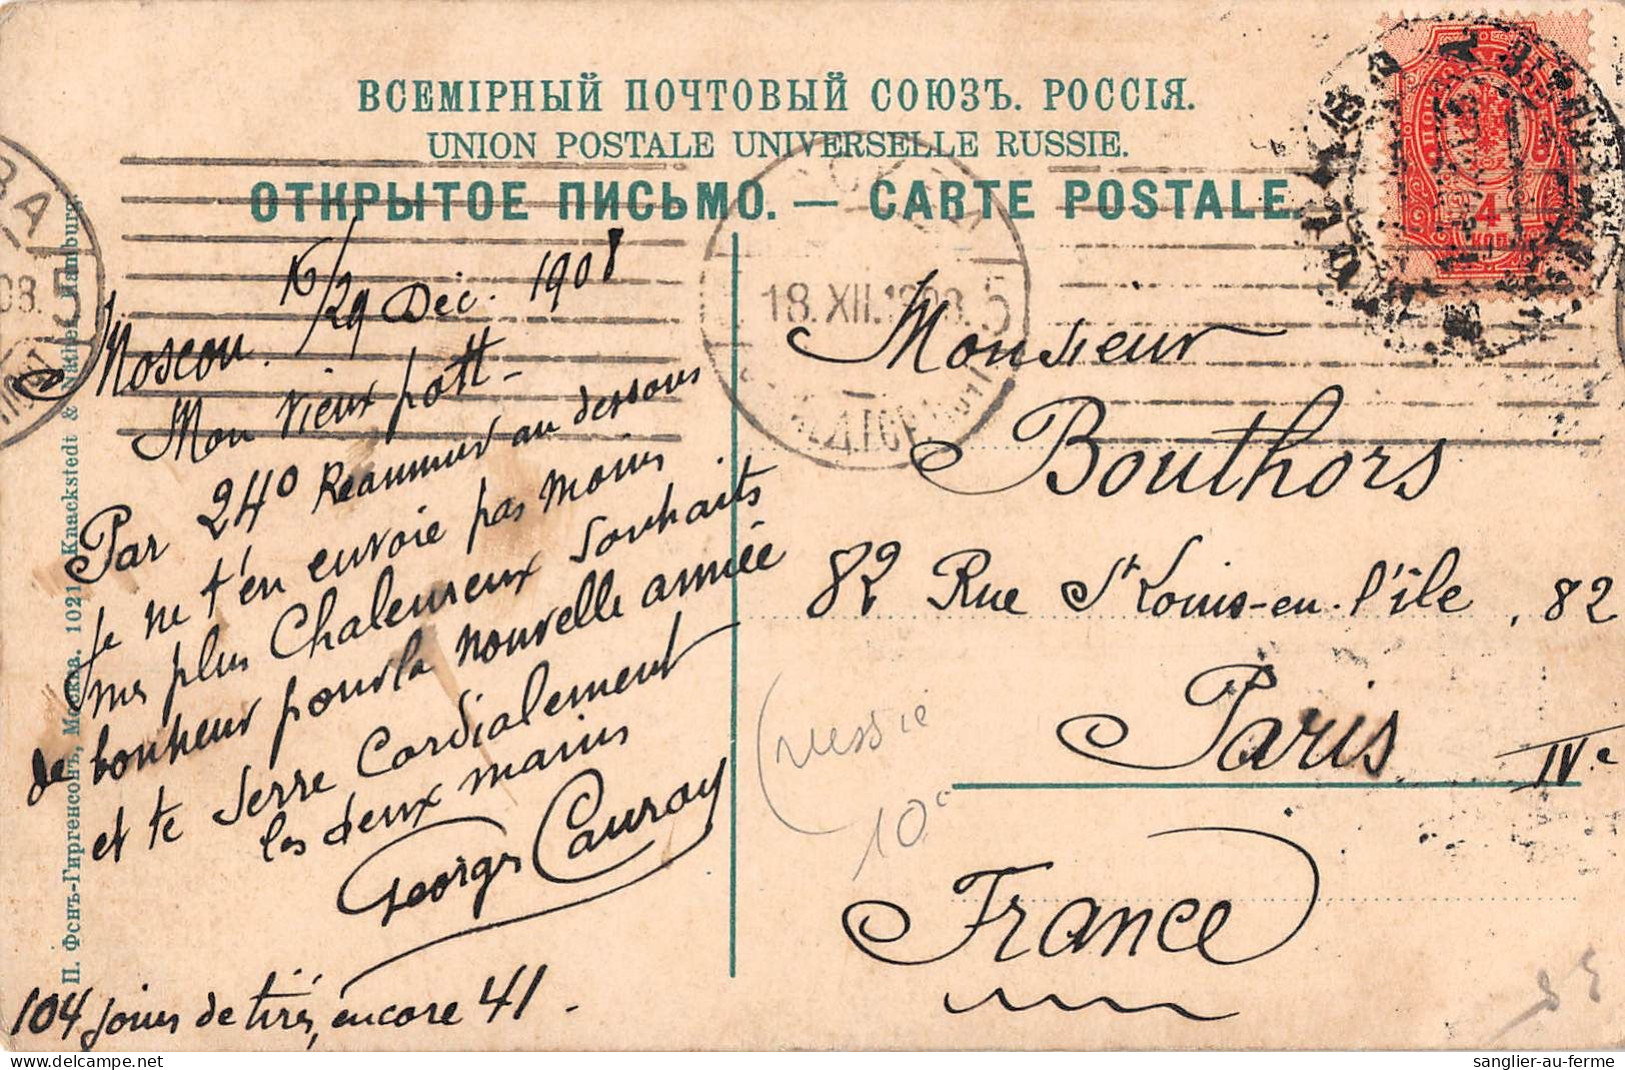 ВСЕМІРНЫЙ ПОЧТОВЫЙ СОЮЗЪ. РОССІЯ.
UNION POSTALE UNIVERSELLE RUSSIE.
ОТКРЫТОЕ ПИСЬМО. — CARTE POSTALE.
4
КОП
18.XII.1908. 5
Moscou. 16/29 Dec. 1908
Mon vieux pott -
Par 24° Reaumur au dessous
Je ne t'en envoie pas moins
mes plus Chaleureux souhaits
de bonheur pour la nouvelle année
et te serre Cordialement
les deux mains
Georges Cauroy
104 jours de tirés, encore 41 .
Monsieur
Bouthors
82 Rue St Louis-en-l'île , 82
Paris IVe
France
russie
10c
П. Фонъ-Гиргенсонъ, Москва. 1021 Knackstedt & Näther, Hamburg.
sanglier-au-ferme